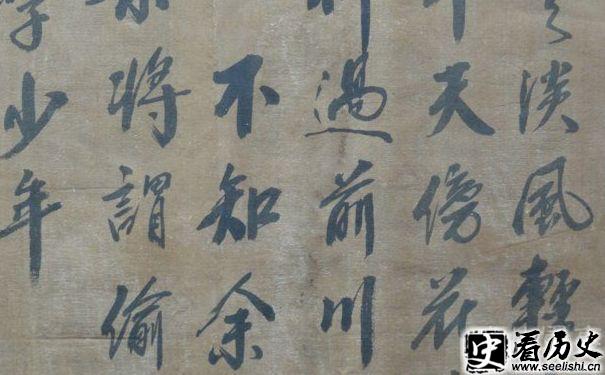 淡風輕
天傍花
過前川
不知余
将謂偷
學少年
史
看历史
www.seelishi.cn